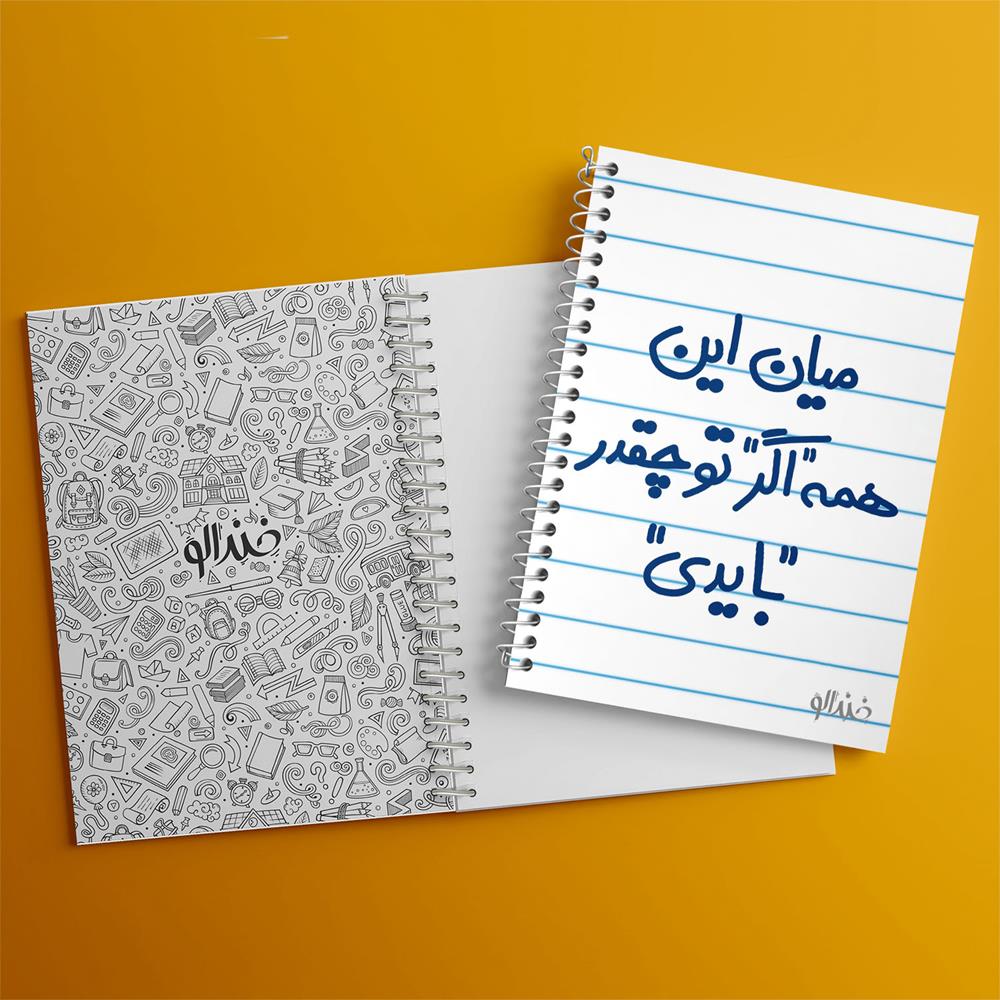 میان این
همه "اگر" تو چقدر
"بایدی"
خندالو
خندالو